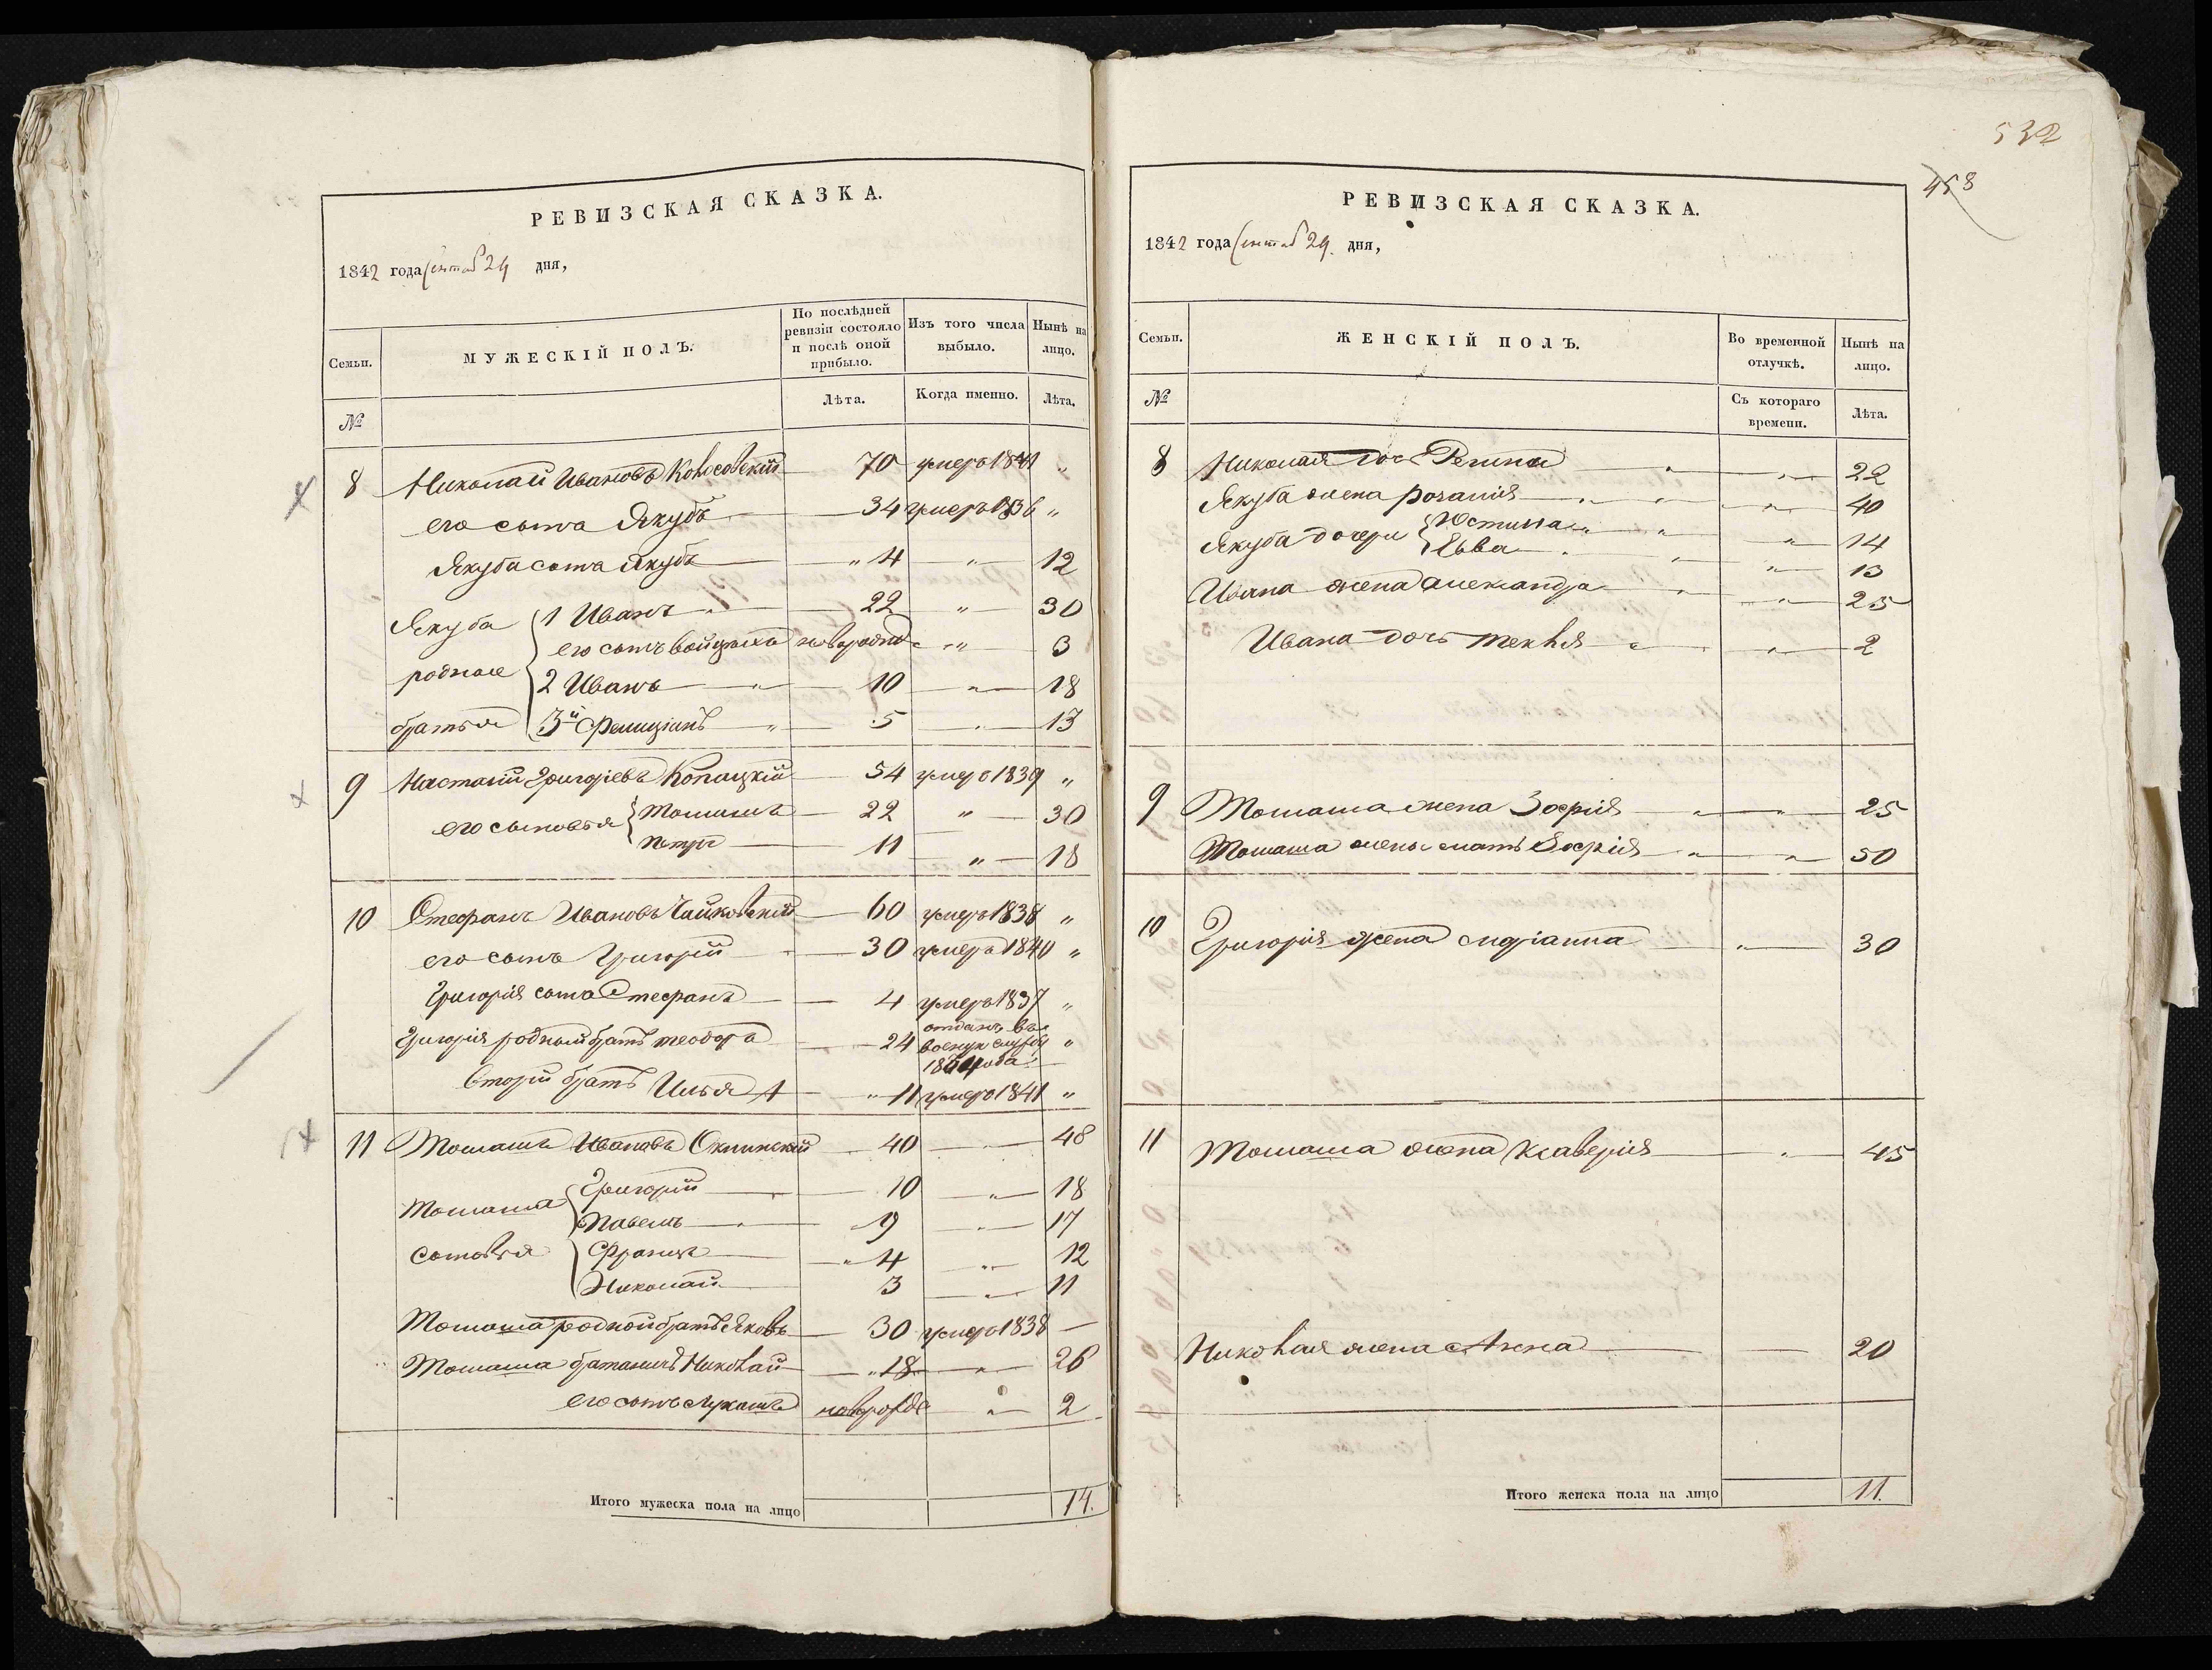 РЕВИЗСКАЯ СКАЗКА.
1842 года Сентяб 24 дня,
Семьи.
МУЖЕСКІЙ ПОЛЪ.
По послѣдней ревизіи состояло и послѣ оной прибыло.
Изъ того числа выбыло.
Нынѣ на лицо.
№
Лѣта.
Когда именно.
Лѣта.
8 Николай Ивановъ Колосовскій 70 умеръ 1841 "
его сынъ Якубъ 34 умеръ 1836 "
Якуба сынъ Якубъ " 4 " 12
Якуба родные братья
1 Иванъ " 22 " 30
его сынъ Войцѣхъ новорожд " 3
2 Иванъ " 10 " 18
3й Фелиціанъ " 5 " 13
9 Григорьевъ Копацкій 54 умеръ 1839 "
его сыновья Томашъ 22 " 30
Петръ 11 " 18
10 Стефанъ Ивановъ Чайковскій 60 умеръ 1838 "
его сынъ Григорій 30 умеръ 1840 "
Григорія сынъ Стефанъ 4 умеръ 1837 "
Григорія родный братъ Теодоръ 24 отданъ въ военую службу года "
Вторій братъ Илья " 11 умеръ 1841 "
11 Томашъ Ивановъ Окнинскій 40 " 48
Томаша сыновья
Григорій 10 " 18
Павелъ 9 " 17
Францъ " 4 " 12
Николай 3 " 11
Томаша родной братъ Яковъ 30 умеръ 1838
Томаша братаничъ Николай " 18 " 26
его сынъ Лукашъ новорожде " 2
Итого мужеска пола на лицо 14.
532
458
РЕВИЗСКАЯ СКАЗКА.
1842 года Сентяб 24. дня,
Семьи.
ЖЕНСКІЙ ПОЛЪ.
Во временной отлучкѣ.
Нынѣ на лицо.
№
Съ котораго времени.
Лѣта.
8 Николая доч 22
Якуба жена Розалія " 40
Якуба дочери Юстина " 14
Эва " 13
Ивана жена Александра " 25
Ивана дочь Текля " 2
9 Томаша жена Зофія " 25
Томаша жены мать Зофія " 50
10 Григорія жена Маріанна " 30
11 Томаша жена Ксаверія " 45
Николая жена Анна 20
Итого женска пола на лицо 11.